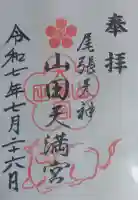 奉拝
尾張天神
山田天満宮
令和七年七月二十六日